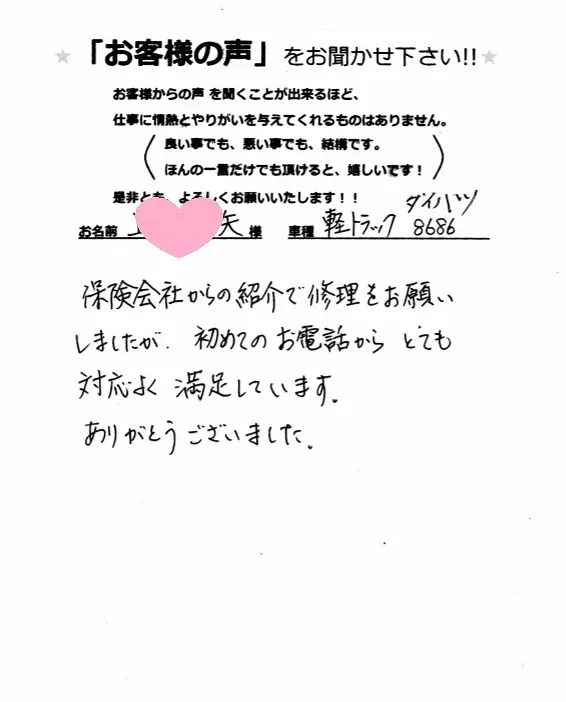 ★「お客様の声」をお聞かせ下さい!!★
お客様からの声を聞くことが出来るほど、
仕事に情熱とやりがいを与えてくれるものはありません。
良い事でも、悪い事でも、結構です。
ほんの一言だけでも頂けると、嬉しいです！
是非とも、よろしくお願いいたします！！
ダイハツ
お名前 矢 様 車種 軽トラック 8686
保険会社からの紹介で修理をお願い
しましたが、初めてのお電話からとても
対応よく満足しています。
ありがとうございました。